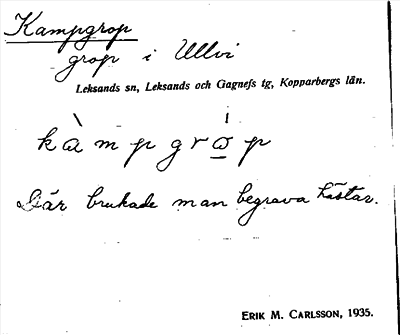 Kampgrop
grop i Ullvi
Leksands sn, Leksands och Gagnefs tg, Kopparbergs län.
kàmpgró̲p
Där brukade man begrava hästar.
ERIK M. CARLSSON, 1935.